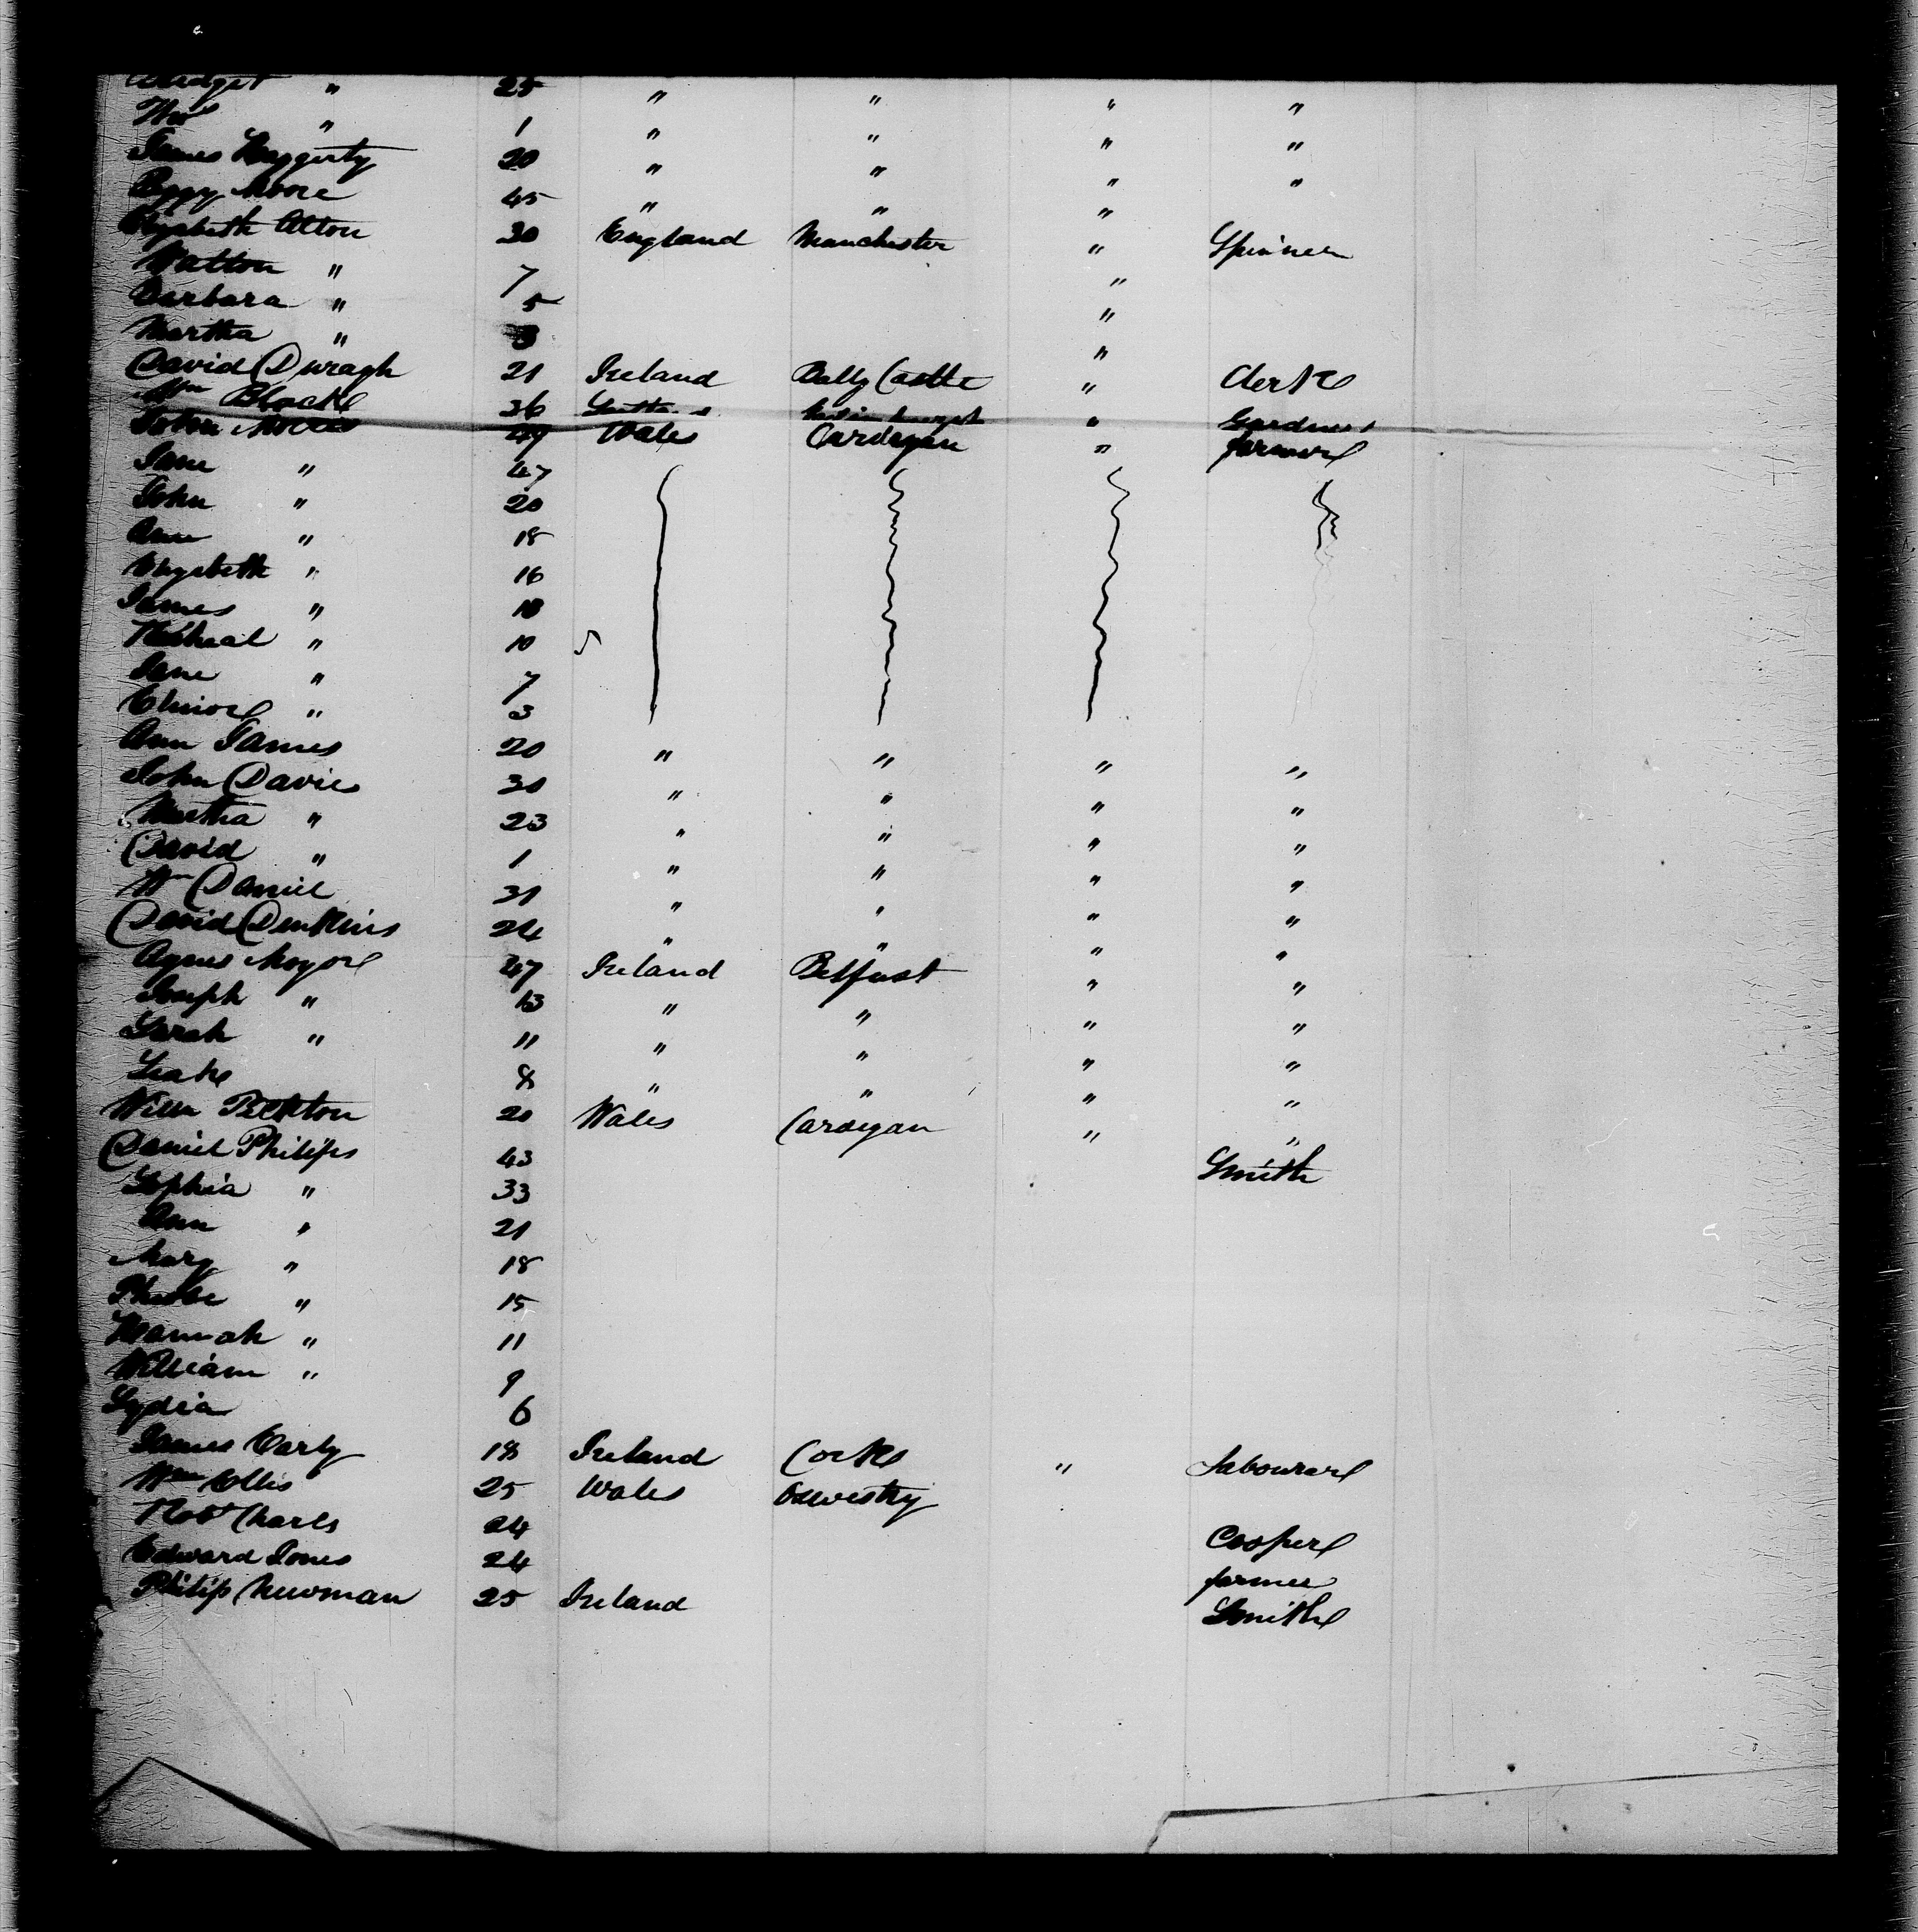 Bridget " 25 " " " "
Wm " 1 " " " "
James Haggerty 20 " " " "
Peggy Moore 45 " " "
Elyzbeth Alton 30 England Manchester " Spinner
" 7 "
Barbara " 5 "
Martha " 3 "
David Duragh 21 Ireland Bally Castle " Clerk
Wm Black 36 " Gardner
John 49 Wales Cardigan " farmer
Jane " 47
John " 20
Ann " 18
Elyzbeth " 16
James "
" 10
Jane " 7
Elinor " 3
Ann James 20 " " " "
John Davies 30 " " " "
Martha " 23 " " " "
David " 1 " " " "
Wm Daniel 31 " " " "
David 24 " " " "
Agnes 47 Ireland Belfast " "
Joseph " 13 " " " "
Sarah " 11 " " " "
8 " " " "
Willm 20 Wales Cardigan " "
Daniel Philips 43 Smith
Sophia " 33
Ann " 21
Mary " 18
Phebe " 15
Hannah " 11
William " 9
Lydia 6
James Early 18 Ireland Cork " Labourer
Wm Ellis 25 Wales Oswestry
Robt Charls 24 Cooper
Edward Jones 24 farmer
Philip Newman 25 Ireland Smith